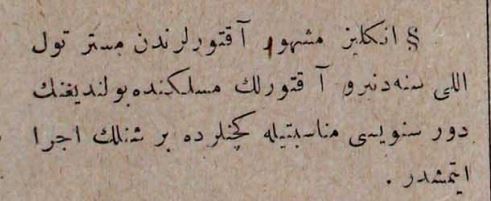 § انكليز مشهور آقتورلرندن مستر تول
اللى سنه‌دنبرو آ قتورلك مسلكنده بولنديغنك
دور سنويسى مناسبتيله كچنلرده بر شنلك اجرا
ايتمشدر .